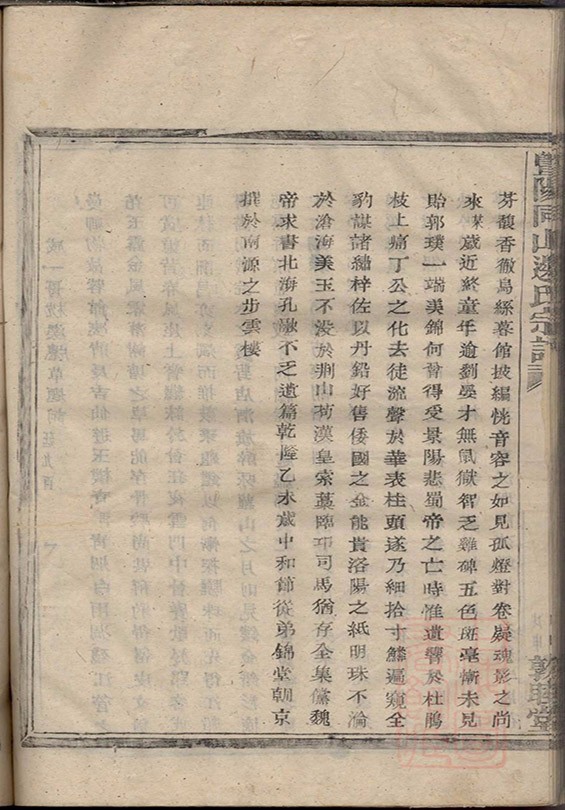 暨陽同山邊氏宗譜
敦睦堂
芬馥香徹烏絲暮館披編恍音容之如見孤燈對卷疑魂影之尚
來某歲近終童年逾劉晏才無鼠獄智乏雞碑五色斑毫慚未見
貽郭璞一端美錦何曾得受景陽悲蜀帝之亡時惟遺響於杜鵑
枝上痛丁公之化去徒流聲於華表柱頭遂乃細拾寸鱗逼窺全
豹謀諸繡梓佐以丹鉛好售倭國之金能貴洛陽之紙明珠不淪
於滄海美玉不没於荆山苟漢皇索藁臨邛司馬猶存全集儻魏
帝求書北海孔融不乏遺篇乾隆乙未歲中和節從弟錦堂朝京
撰於南源之步雲樓